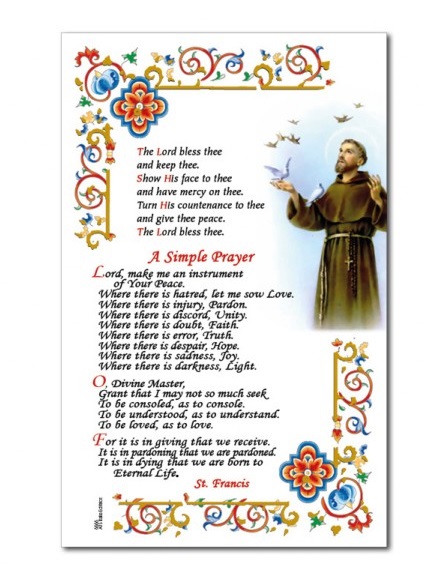 The Lord bless thee
and keep thee.
Show His face to thee
and have mercy on thee.
Turn His countenance to thee
and give thee peace.
The Lord bless thee.
A Simple Prayer
Lord, make me an instrument
of Your Peace.
Where there is hatred, let me sow Love.
Where there is injury, Pardon.
Where there is discord, Unity.
Where there is doubt, Faith.
Where there is error, Truth.
Where there is despair, Hope.
Where there is sadness, Joy.
Where there is darkness, Light.
O, Divine Master,
Grant that I may not so much seek
To be consoled, as to console.
To be understood, as to understand.
To be loved, as to love.
For it is in giving that we receive.
It is in pardoning that we are pardoned.
It is in dying that we are born to
Eternal Life.
St. Francis